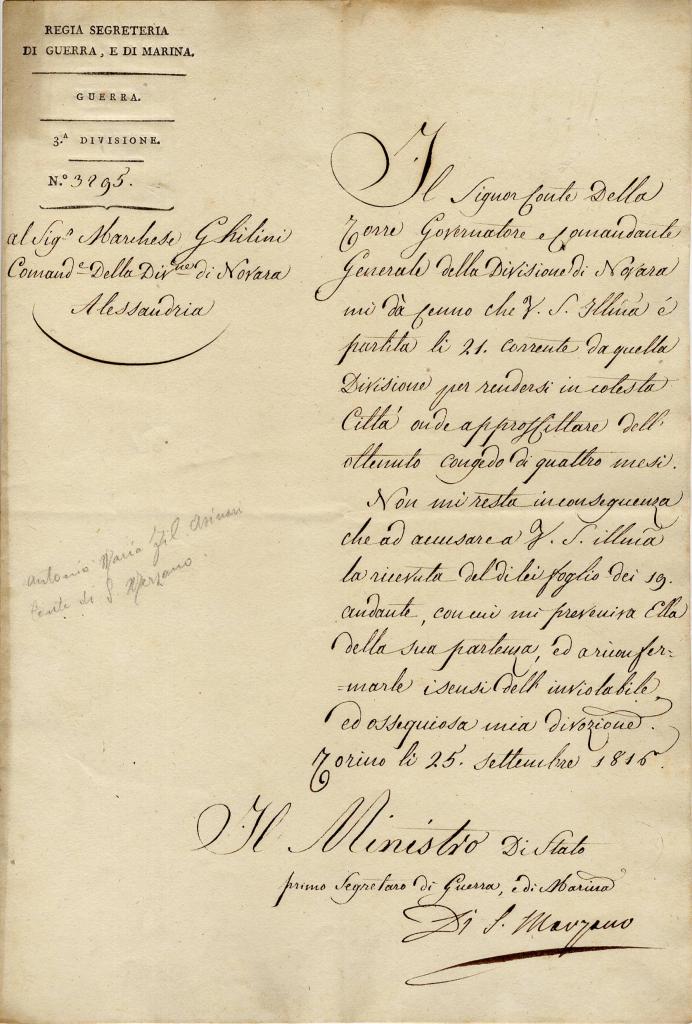 REGIA SEGRETERIA
DI GUERRA, E DI MARINA.
GUERRA.
3.A DIVISIONE.
N.o 3295.
al Sig.r Marchese Ghilini
Comand.e Della Div.ne di Novara
Alessandria
Il Signor Conte Della
Torre Governatore e Comandante
Generale della Divisione di Novara
mi dà Cenno che V. S. Illma é
partita li 21. corrente da quella
Divisione per rendersi in cotesta
Cittá onde approffittare dell'
ottenuto congedo di quattro mesi.
Non mi resta in conseguenza
che ad accusare a V. S. illma
la ricevuta del di lei foglio dei 19.
andante, con cui mi preveniva Ella
della sua partenza, ed a riconfer=
=marle i sensi dell' inviolabile,
ed ossequiosa mia divozione.
Torino li 25. settembre 1816.
Il Ministro Di Stato
primo Segretaro di Guerra, e di Marina
Di S. Marzano
Antonio Maria fil Asinari
di S. Marzano.